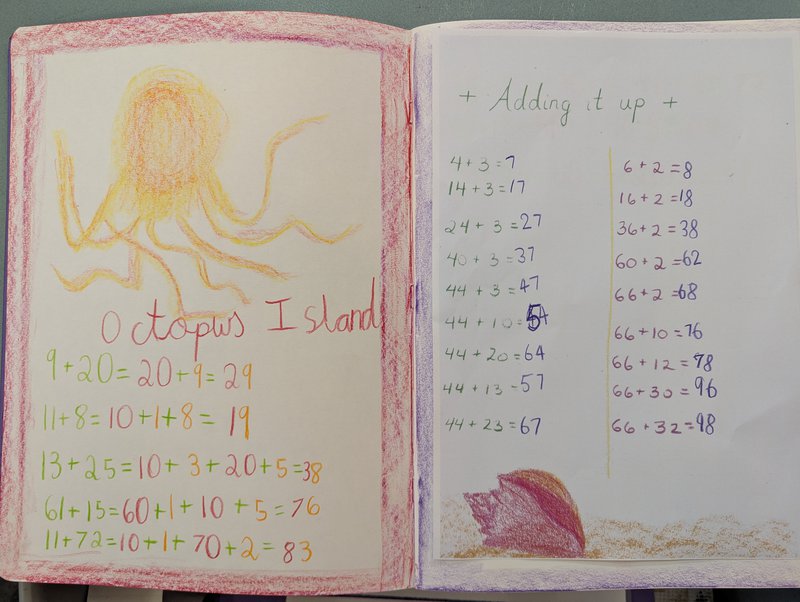 Octopus Island
9+20=20+9=29
11+8=10+1+8=19
13+25=10+3+20+5=38
61+15=60+1+10+5=76
11+72=10+1+70+2=83
+ Adding it up +
4+3=7
14+3=17
24+3=27
40+3=37
44+3=47
44+10=54
44+20=64
44+13=57
44+23=67
6+2=8
16+2=18
36+2=38
60+2=62
66+2=68
66+10=76
66+12=78
66+30=96
66+32=98